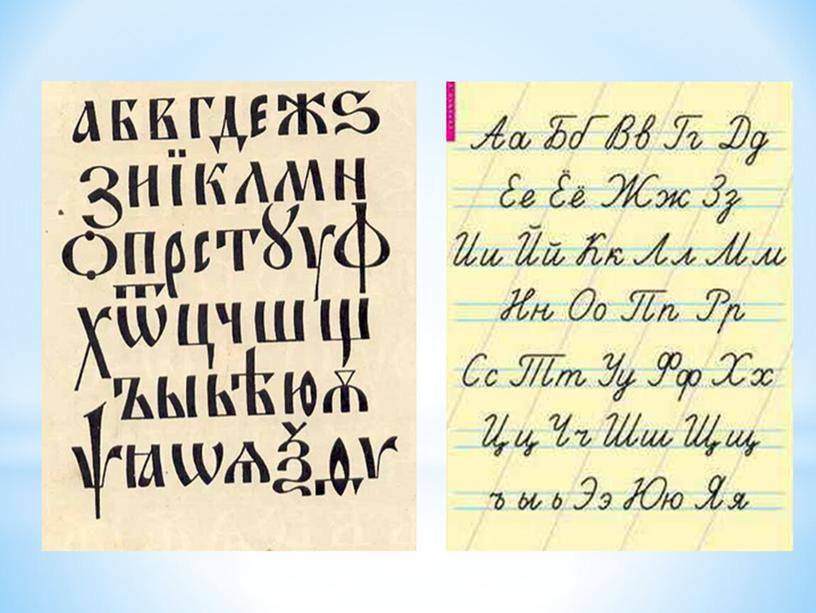 АБВГДЕЖЅ
ЗИЇКЛМН
ОПРСТꙊУФ
ХѾЦЧШЩ
ЪЫЬѢЮѪ
ѰꙖѠѦѮѲѴ
Аа Бб Вв Гг Дд
Ее Ёё Жж Зз
Ии Йй Кк Лл Мм
Нн Оо Пп Рр
Сс Тт Уу Фф Хх
Цц Чч Шш Щщ
ъ ы ь Ээ Юю Яя